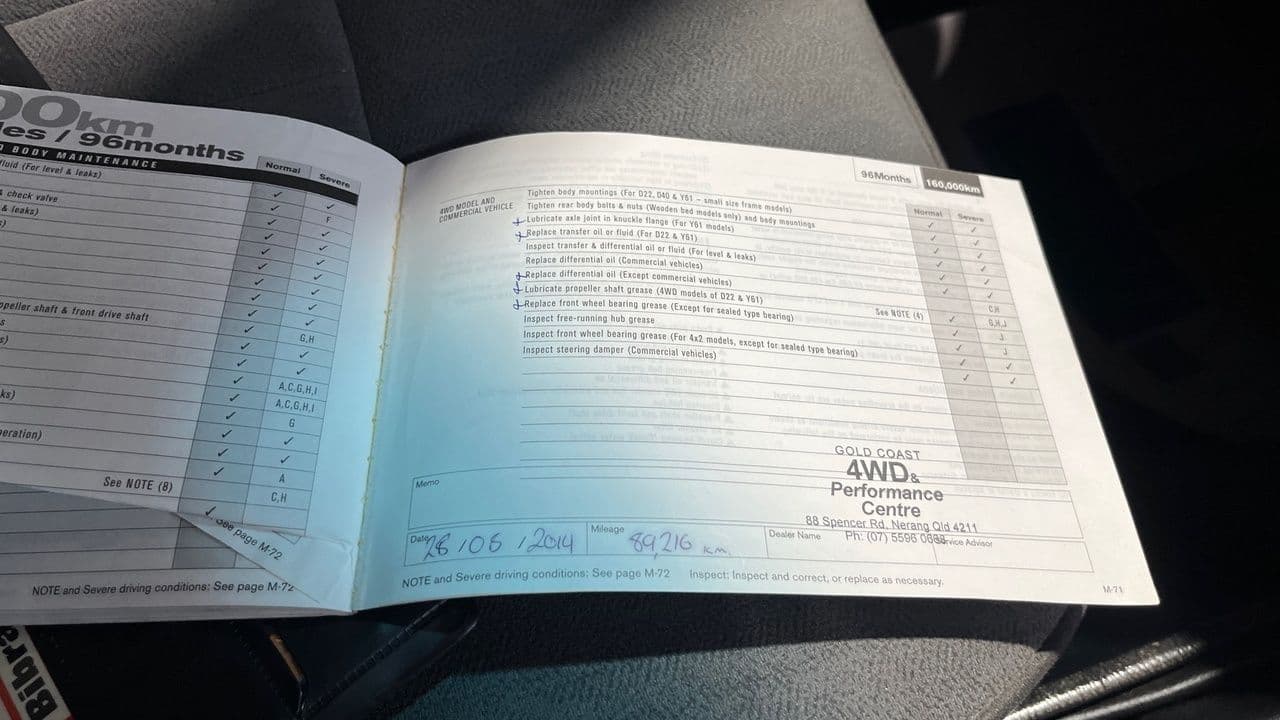 00km
les / 96months
D BODY MAINTENANCE
Normal
Severe
fluid (For level & leaks)
✓ ✓
& check valve
✓ F
& leaks)
✓ ✓
s)
✓ ✓
✓ ✓
✓ ✓
✓ ✓
✓ ✓
peller shaft & front drive shaft
✓ G,H
s
✓ ✓
s)
✓ ✓
✓ A,C,G,H,I
✓ A,C,G,H,I
ks)
✓ G
✓ ✓
peration)
✓ ✓
✓ A
See NOTE (8)
✓ C,H
See page M-72
NOTE and Severe driving conditions: See page M-72
Bibra
96Months
160,000km
Normal
Severe
4WD MODEL AND
COMMERCIAL VEHICLE
Tighten body mountings (For D22, D40 & Y61 – small size frame models)
Tighten rear body bolts & nuts (Wooden bed models only) and body mountings
+ Lubricate axle joint in knuckle flange (For Y61 models)
+ Replace transfer oil or fluid (For D22 & Y61)
Inspect transfer & differential oil or fluid (For level & leaks)
Replace differential oil (Commercial vehicles)
+ Replace differential oil (Except commercial vehicles)
+ Lubricate propeller shaft grease (4WD models of D22 & Y61)
+ Replace front wheel bearing grease (Except for sealed type bearing)
See NOTE (4)
Inspect free-running hub grease
Inspect front wheel bearing grease (For 4x2 models, except for sealed type bearing)
Inspect steering damper (Commercial vehicles)
C,H
G,H,J
J
J
Memo
GOLD COAST
4WD &
Performance
Centre
88 Spencer Rd, Nerang Qld 4211
Ph: (07) 5596
Date 28/05/2014
Mileage 89,216 km.
Dealer Name
Service Advisor
NOTE and Severe driving conditions: See page M-72 Inspect: Inspect and correct, or replace as necessary.
M-71